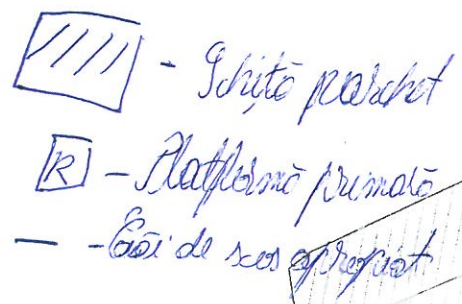 - Schiță parchet
R - Platformă primată
- Căi de scos apropiat